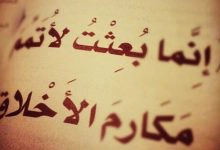 إِنَّما بُعِثْتُ لأُتمم
مَكَارِمَ الأَخْلاق